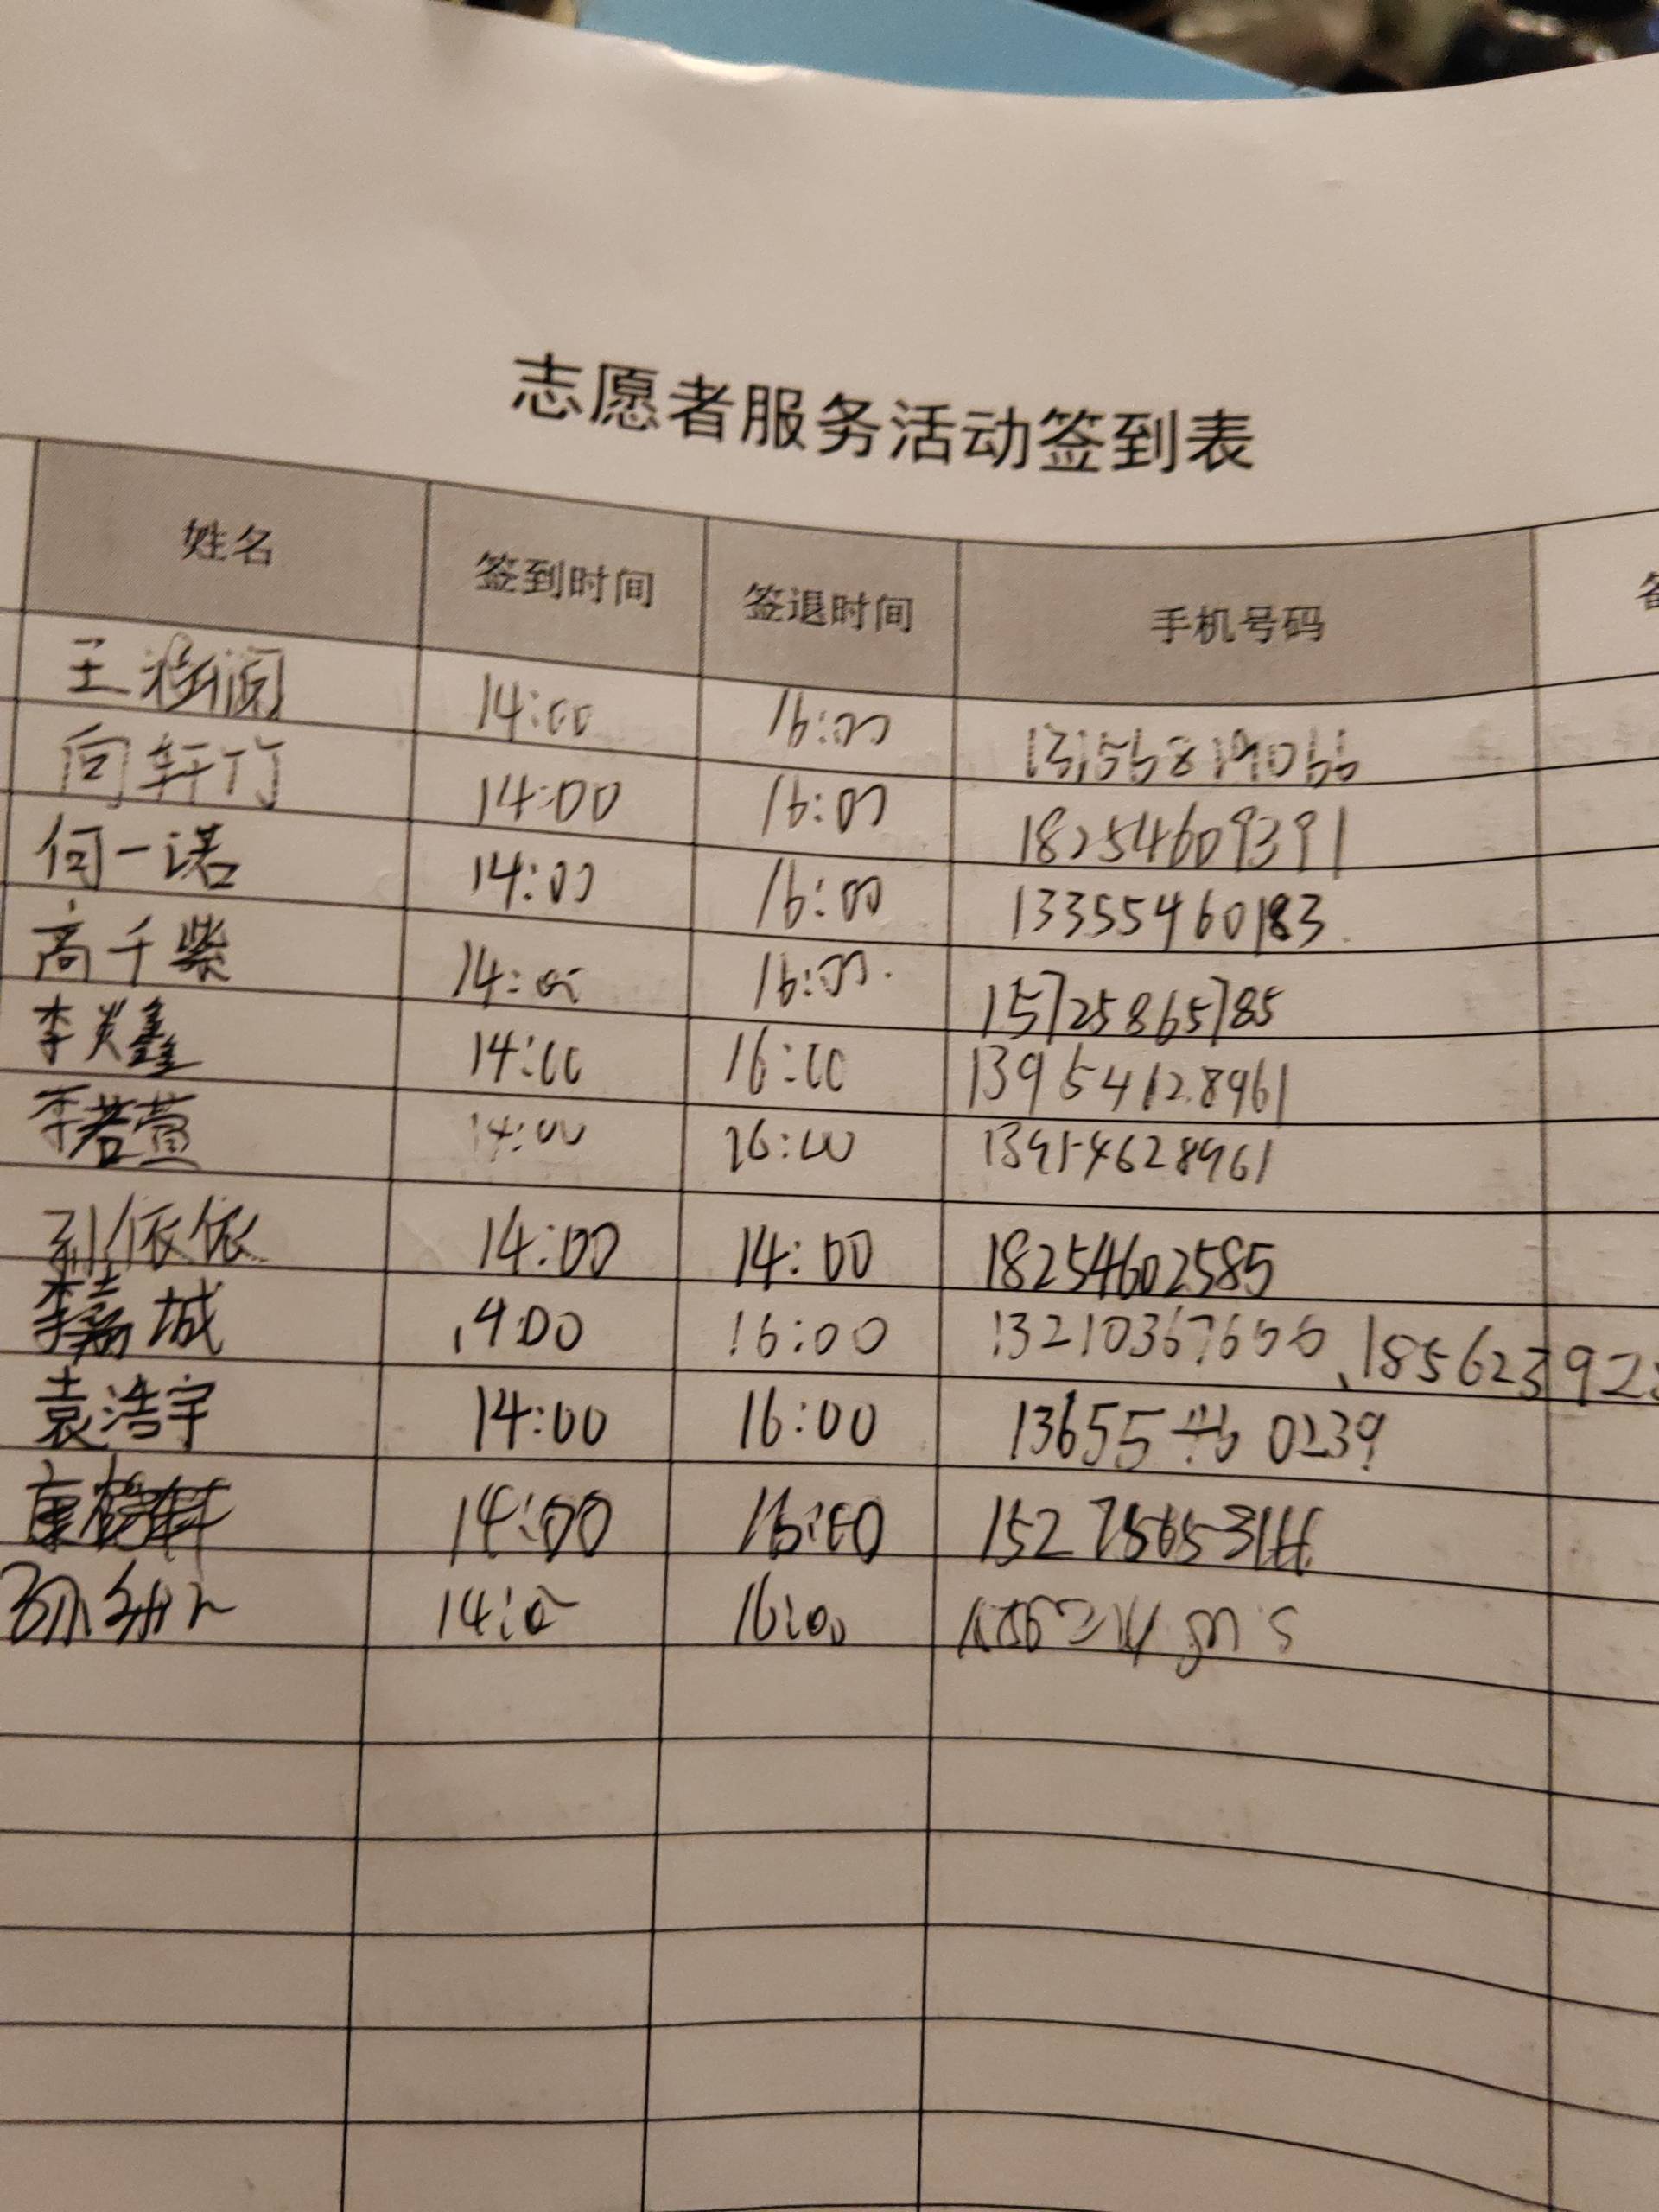 志愿者服务活动签到表
姓名 签到时间 签退时间 手机号码
王 14:00 16:00
向轩竹 14:00 16:00 18254609391
何一诺 14:00 16:00 13355460183
高千紫 14:00 16:00 15725865785
李炎鑫 14:00 16:00 13954128961
李若萱 14:00 16:00 13954628961
刘依依 14:00 14:00 18254602585
城 16:00
袁浩宇 14:00 16:00 13655 0239
14:00 16:00
16:00